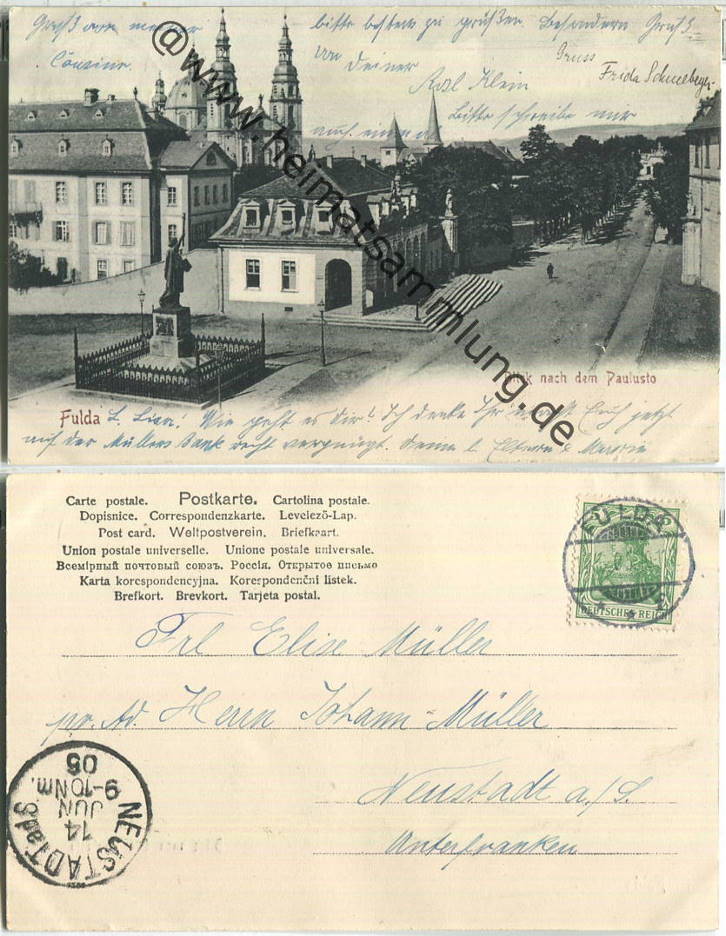 Gruß von meiner
Cousine.
bitte bestens zu grüßen besondern Gruß
von Deiner
Rosl Klein
Gruss
Frida Schneeberger
bitte schreibe mir
auch einmal
@www.heimatsammlung.de
Blick nach dem Paulusto
Fulda L. Lisa! Wie geht es Dir! Ich denke Ihr Euch jetzt
auf der Müllers Bank recht vergnügt. Deine l. Eltern &
Carte postale. Postkarte. Cartolina postale.
Dopisnice. Correspondenzkarte. Levelezö-Lap.
Post card. Weltpostverein. Briefkaart.
Union postale universelle. Unione postale universale.
Всемірный почтовый союзъ. Россія. Открытое письмо
Karta korespondencyjna. Korespondenční listek.
Brefkort. Brevkort. Tarjeta postal.
FULDA
DEUTSCHES REICH
Frl Elise Müller
pr. Ad. Herrn Johann Müller
Neustadt a./S.
Unterfranken
NEUSTADT a d S
14
JUN
9-10Nm.
05